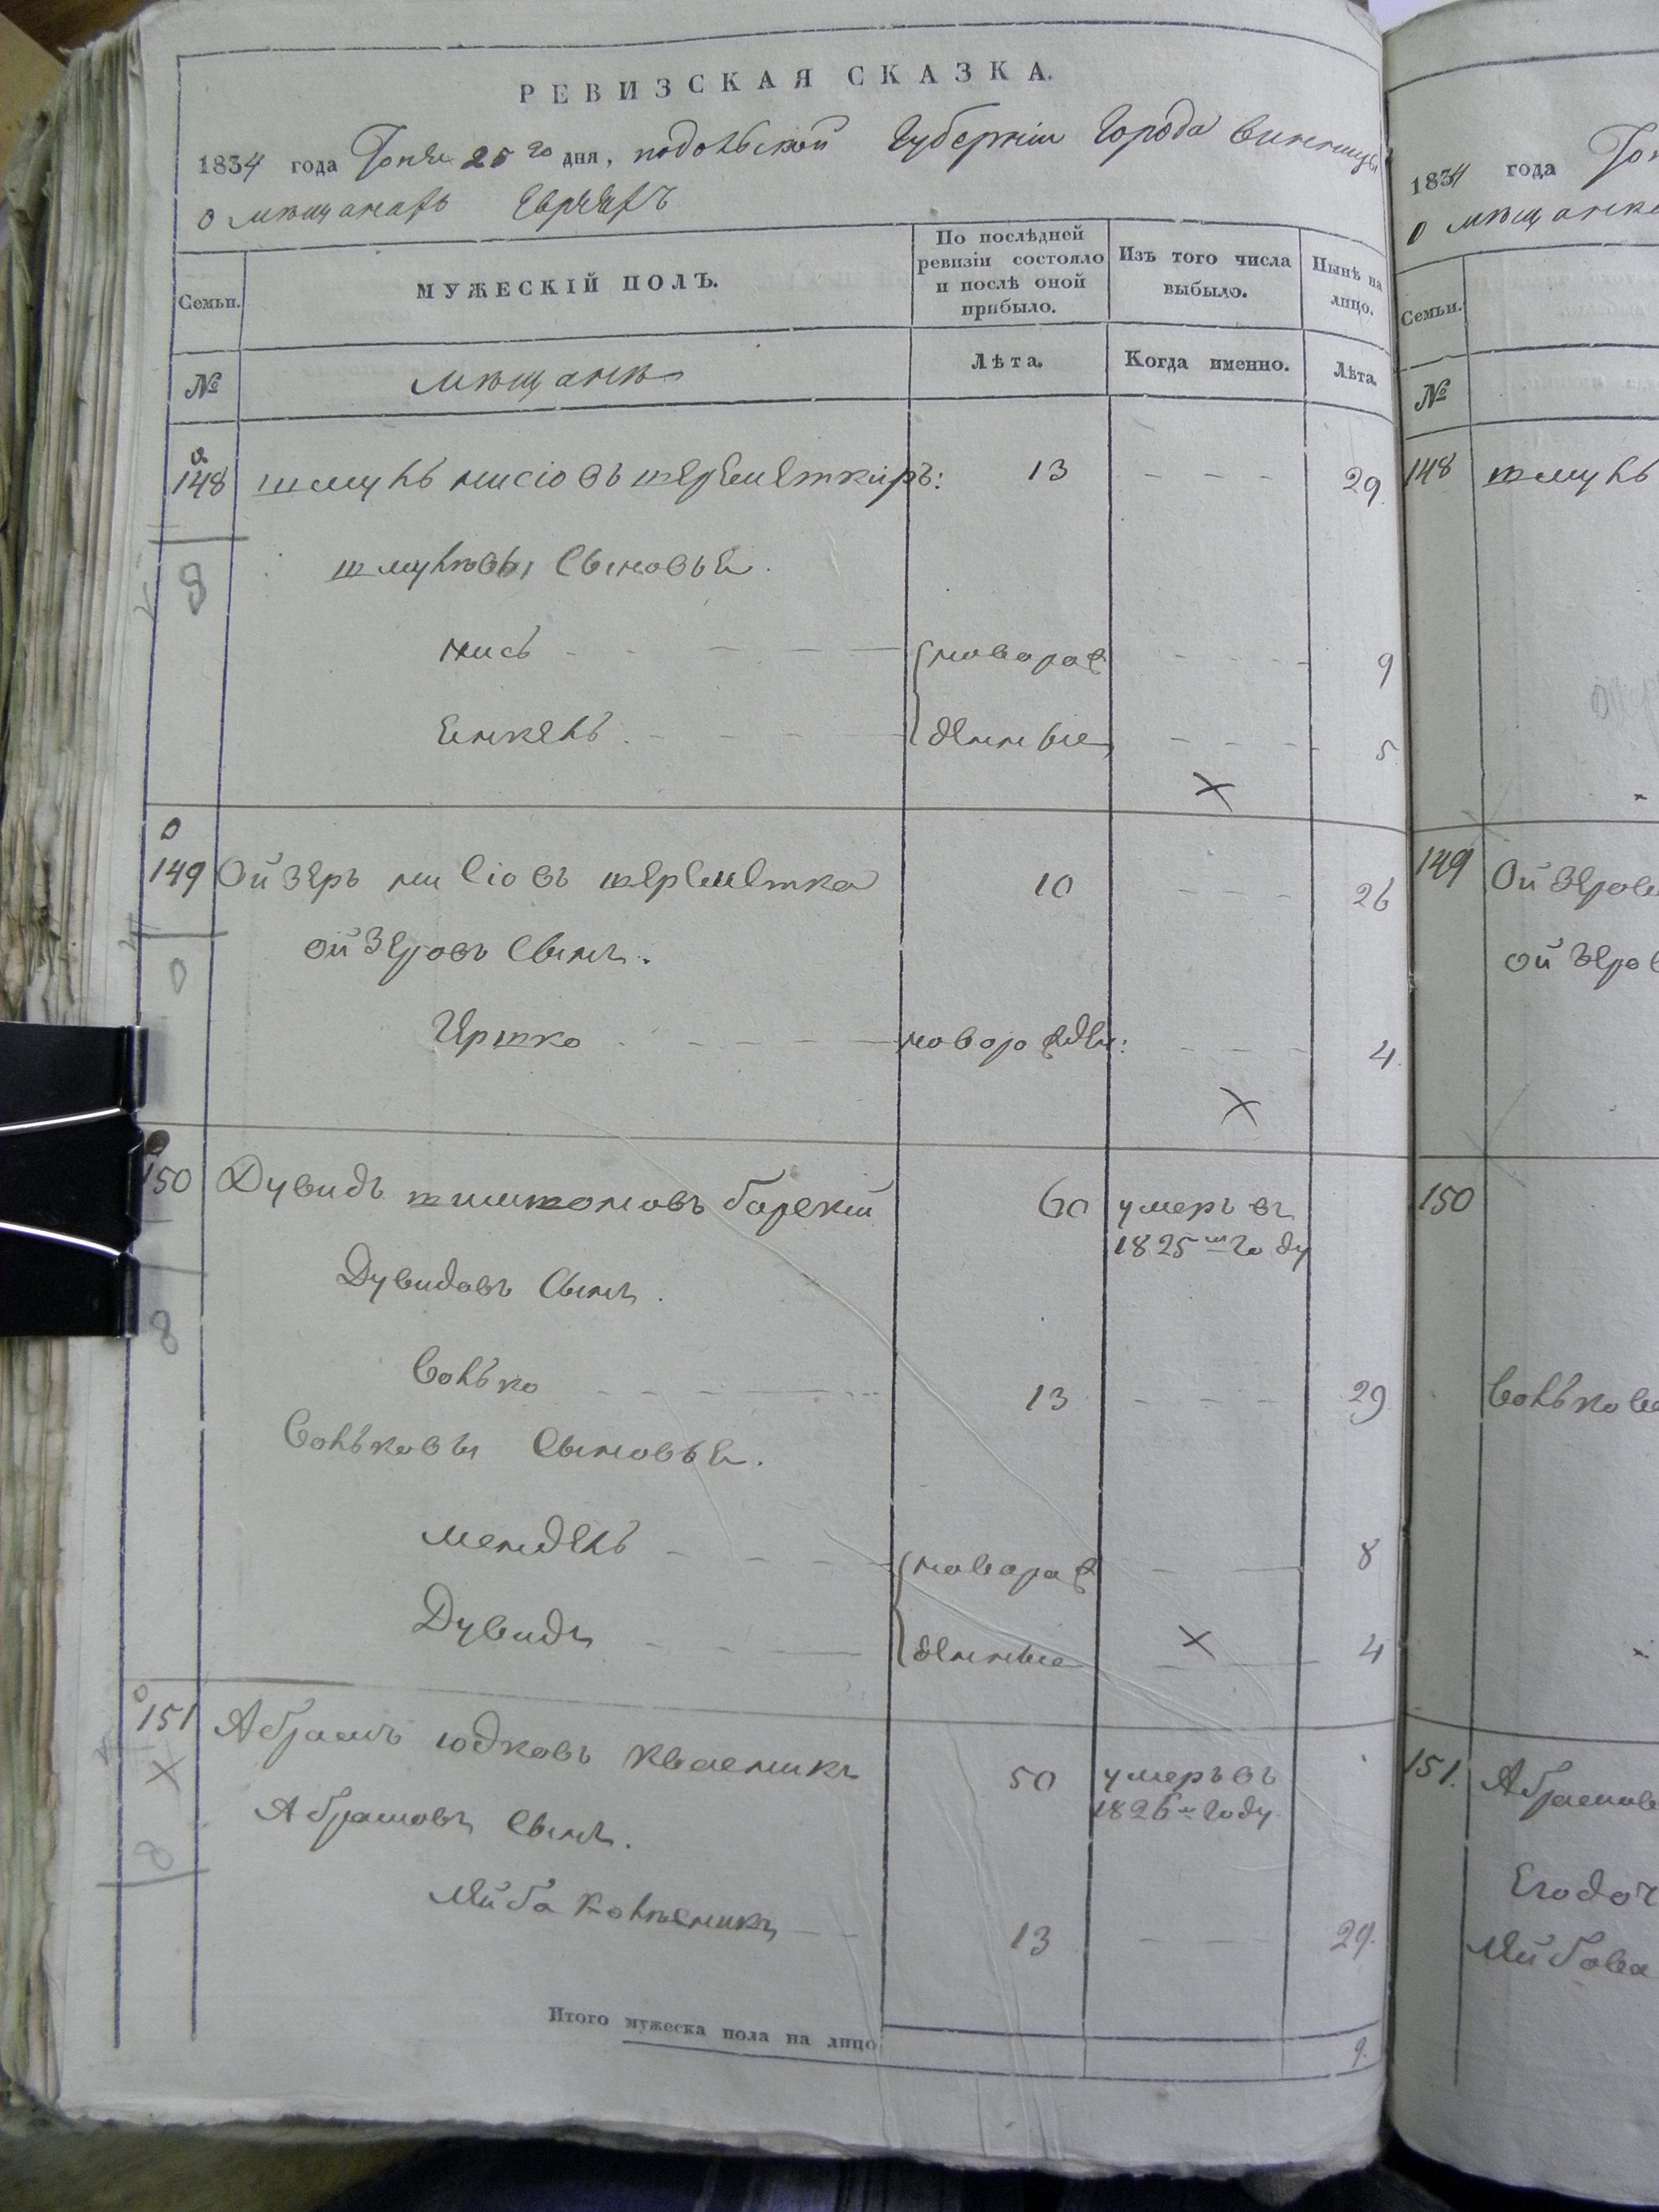 РЕВИЗСКАЯ СКАЗКА.
1834 года 25го дня, подольской Губерніи Города винницы
о мѣщанахъ Евреяхъ
Семьи.
МУЖЕСКІЙ ПОЛЪ.
По послѣдней ревизіи состояло и послѣ оной прибыло.
Изъ того числа выбыло.
Нынѣ на лицо.
№
мѣщане
Лѣта.
Когда именно.
Лѣта.
148 шмуль нисіовъ 13 29
шмулѣвы Сыновья.
нисъ новорож 9
Еикель денные 5
149 Ойзеръ нисіовъ 10 26
ойзеровъ Сынъ.
Гершко новорожден: 4
150 Дувидъ шимшоновъ барскій 60 умеръ въ
1825м году
Дувидовъ Сынъ.
Солько 13 29
Сольковы Сыновья.
мендель новорож 8
Дувидъ денные 4
151 Абрамъ юдковъ Квасникъ 50 умеръ въ
1826м году
Абрамовъ Сынъ.
Лейба 13 29.
Итого мужеска пола на лицо 9.
1834 года
о
Семьи.
№
148 шмуль
149
150
151.